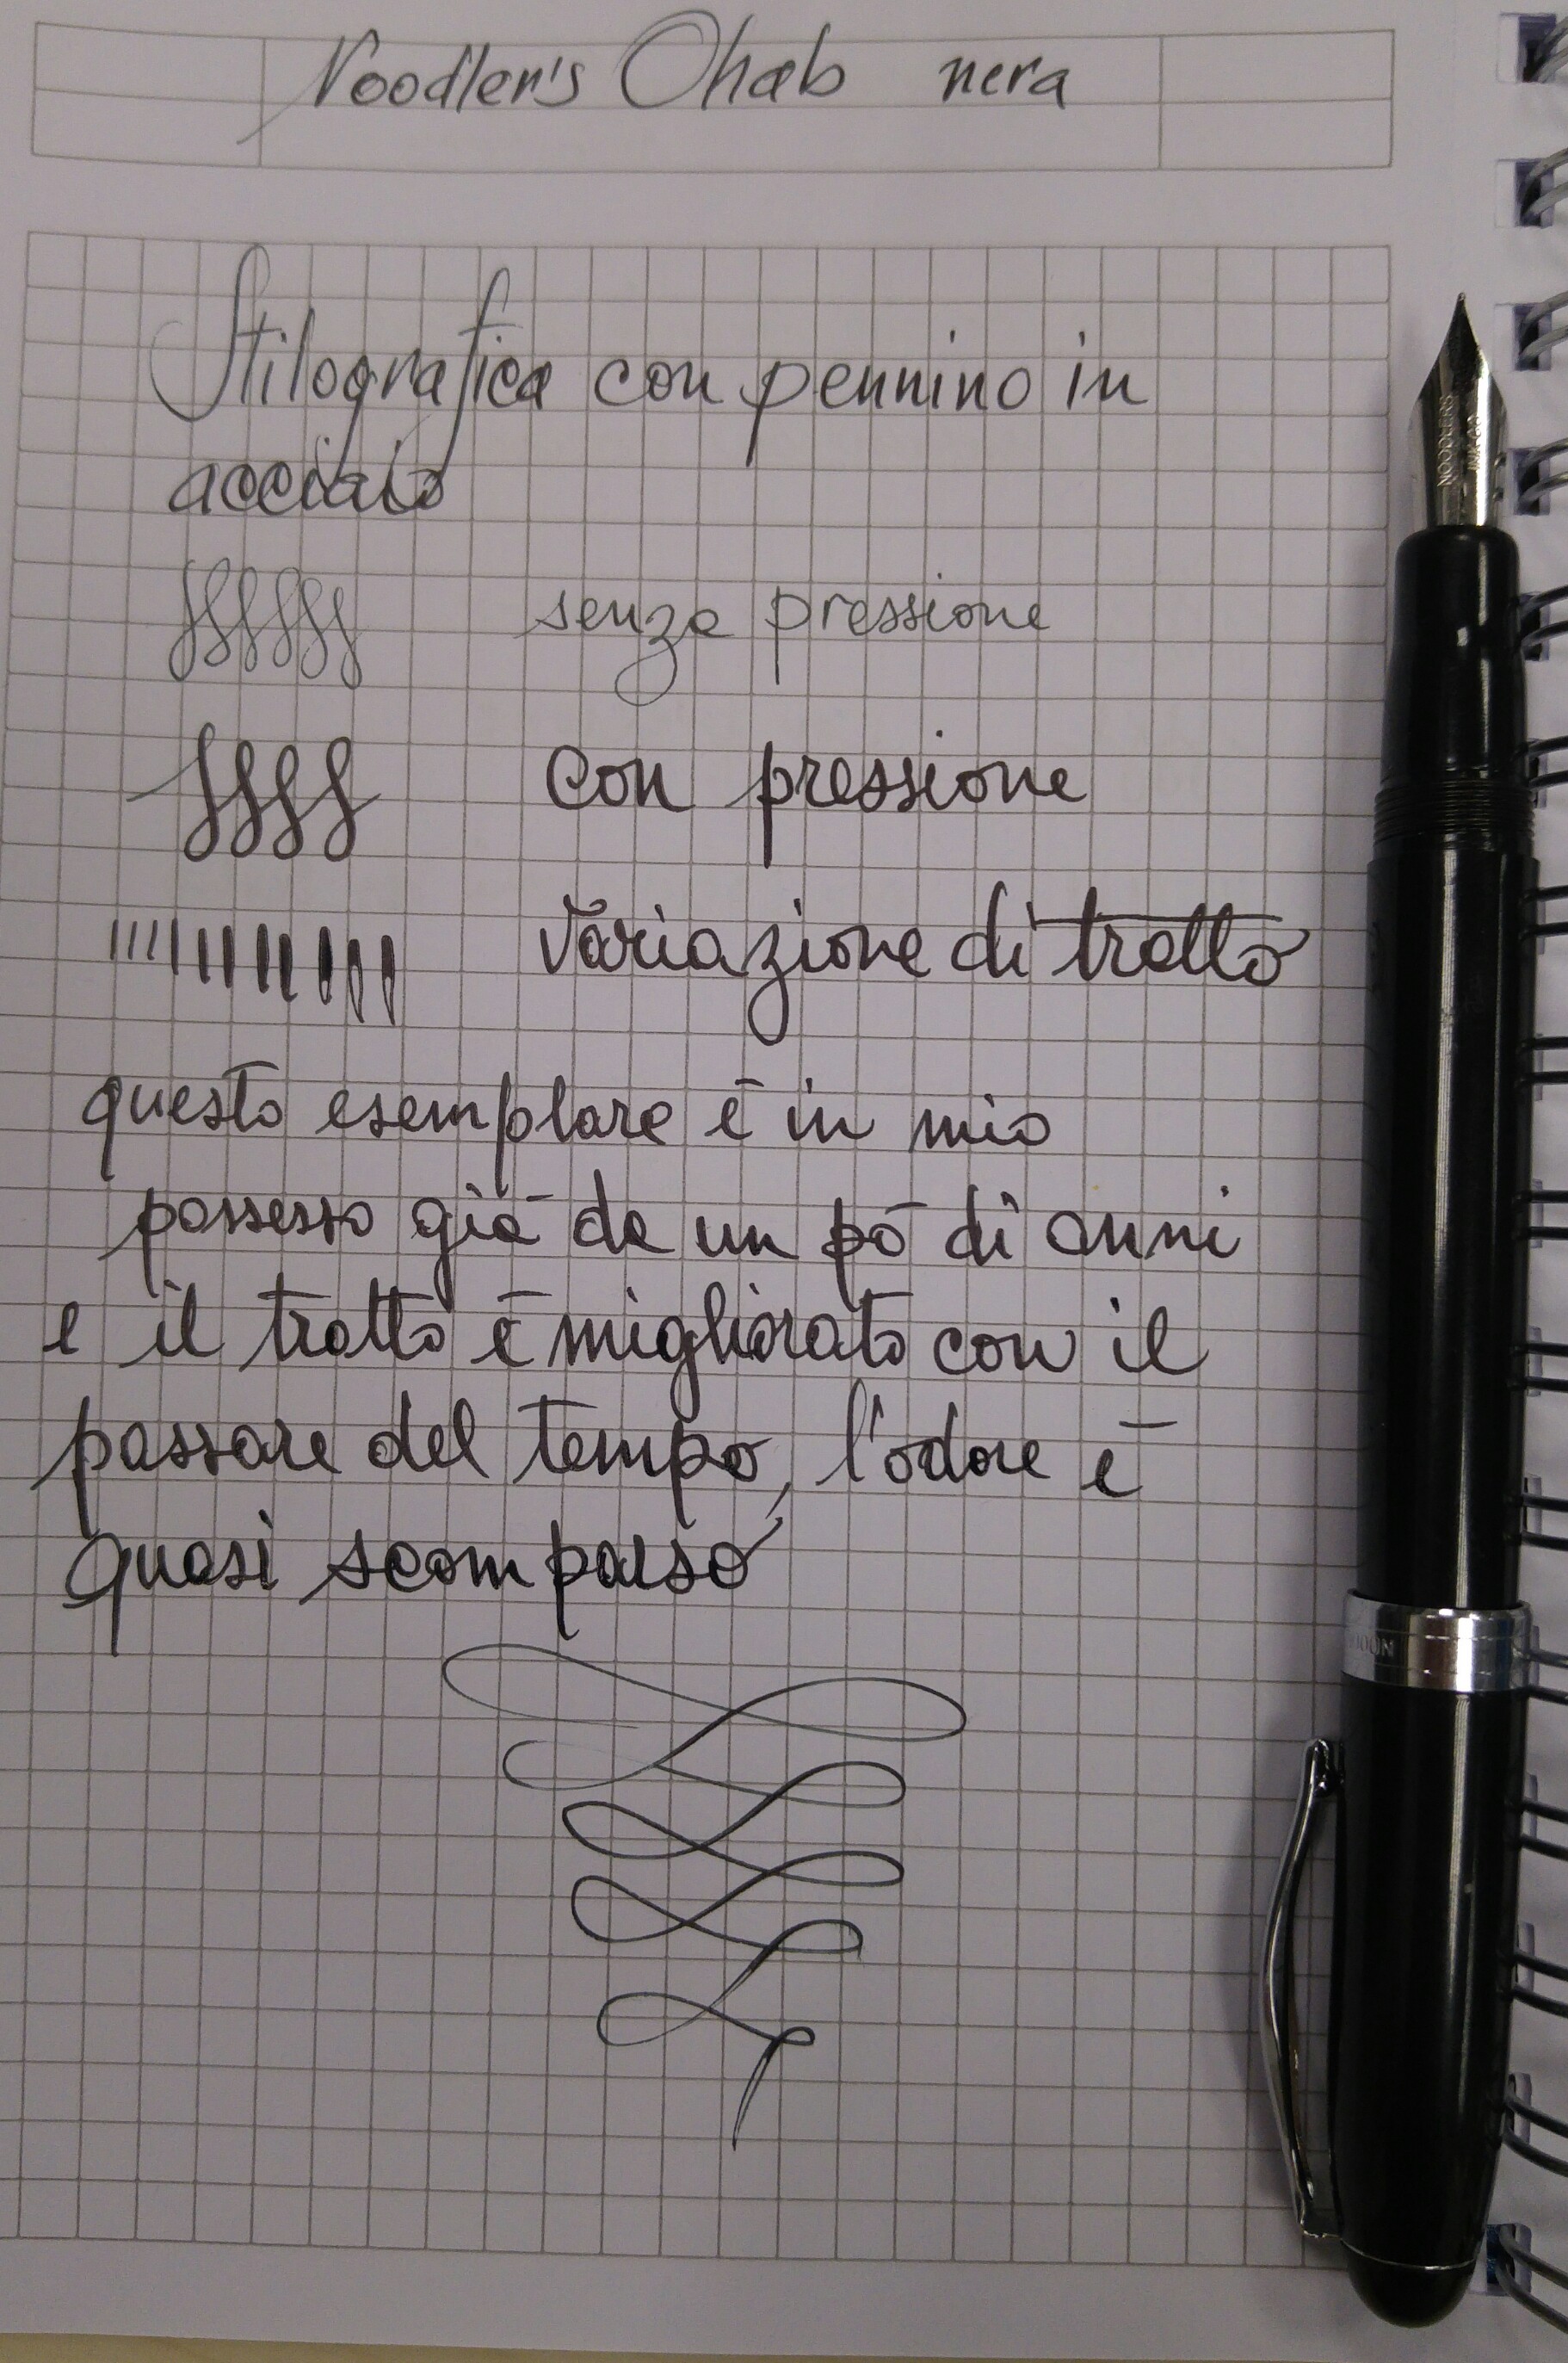 Noodler's Ohab nera
Stilografica con pennino in
acciaio
senza pressione
con pressione
variazione di tratto
questo esemplare è in mio
possesso già da un pò di anni
e il tratto è migliorato con il
passare del tempo, l'odore è
quasi scomparso
NOODLER'S